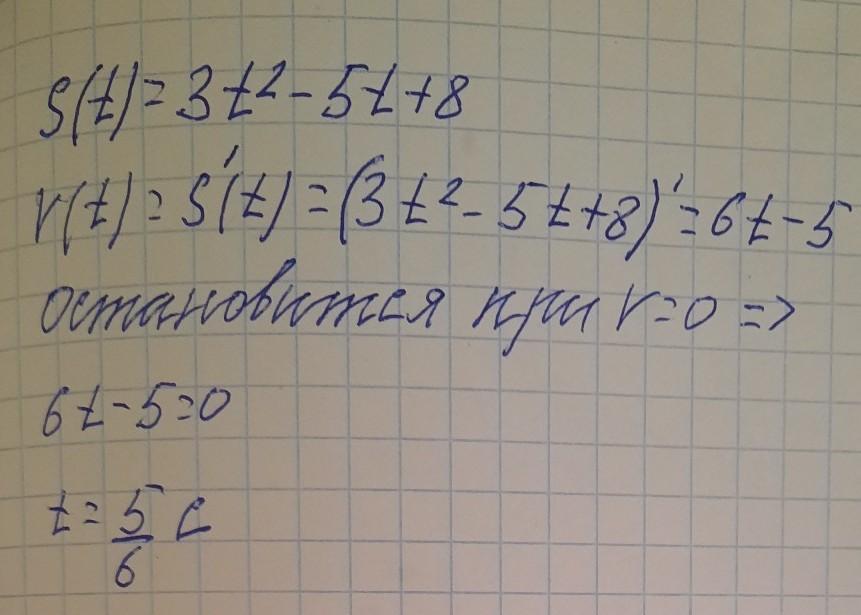 S(t)=3t²-5t+8
v(t)=S'(t)=(3t²-5t+8)'=6t-5
остановится при v=0 =>
6t-5=0
t=5/6 с